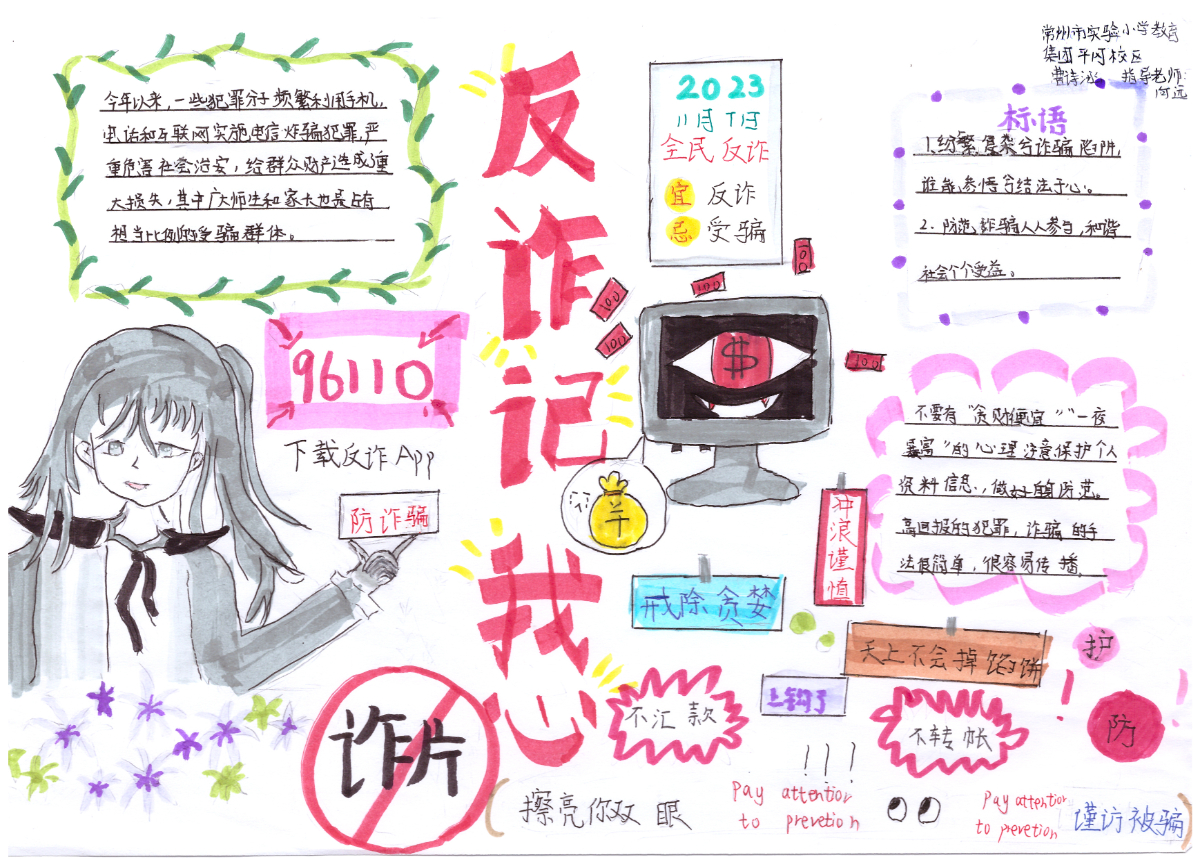 常州市实验小学教育
集团平冈校区
曹诗涵 指导老师:
何远
今年以来,一些犯罪分子频繁利用手机,
电话和互联网实施电信诈骗犯罪,严
重危害社会治安,给群众财产造成了重
大损失,其中广大师生和家长也是占有
相当比例的受骗群体。
反诈记我心
2023
11月
全民反诈
宜 反诈
忌 受骗
标语
1.纷繁复杂兮诈骗陷阱,
谁能参悟兮结法于心。
2.防范诈骗人人参与,和谐
社会个个受益。
96110
下载反诈App
防诈骗
100
100
100
100
100
$
羊
不要有“贪财便宜”“一夜
暴富”的心理注意保护个人
资料信息,做好自防范。
高回报的犯罪,诈骗的手
法很简单,很容易传播
冲浪谨慎
戒除贪婪
天上不会掉馅饼
上钩了
护
防
不汇款
不转帐
诈片
擦亮你双眼
Pay attention
to prevetion
Pay attention
to prevetion
谨访被骗